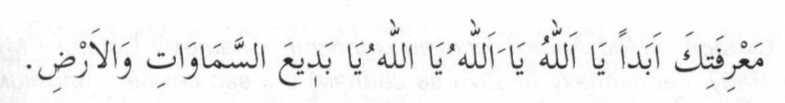 مَعْرِفَتِكَ اَبَداً يَا اَللهُ يَا َاَلله ُيَا الله ُيَا بَدِيعَ السَّمَاوَاتِ وَالاَرْضِ.